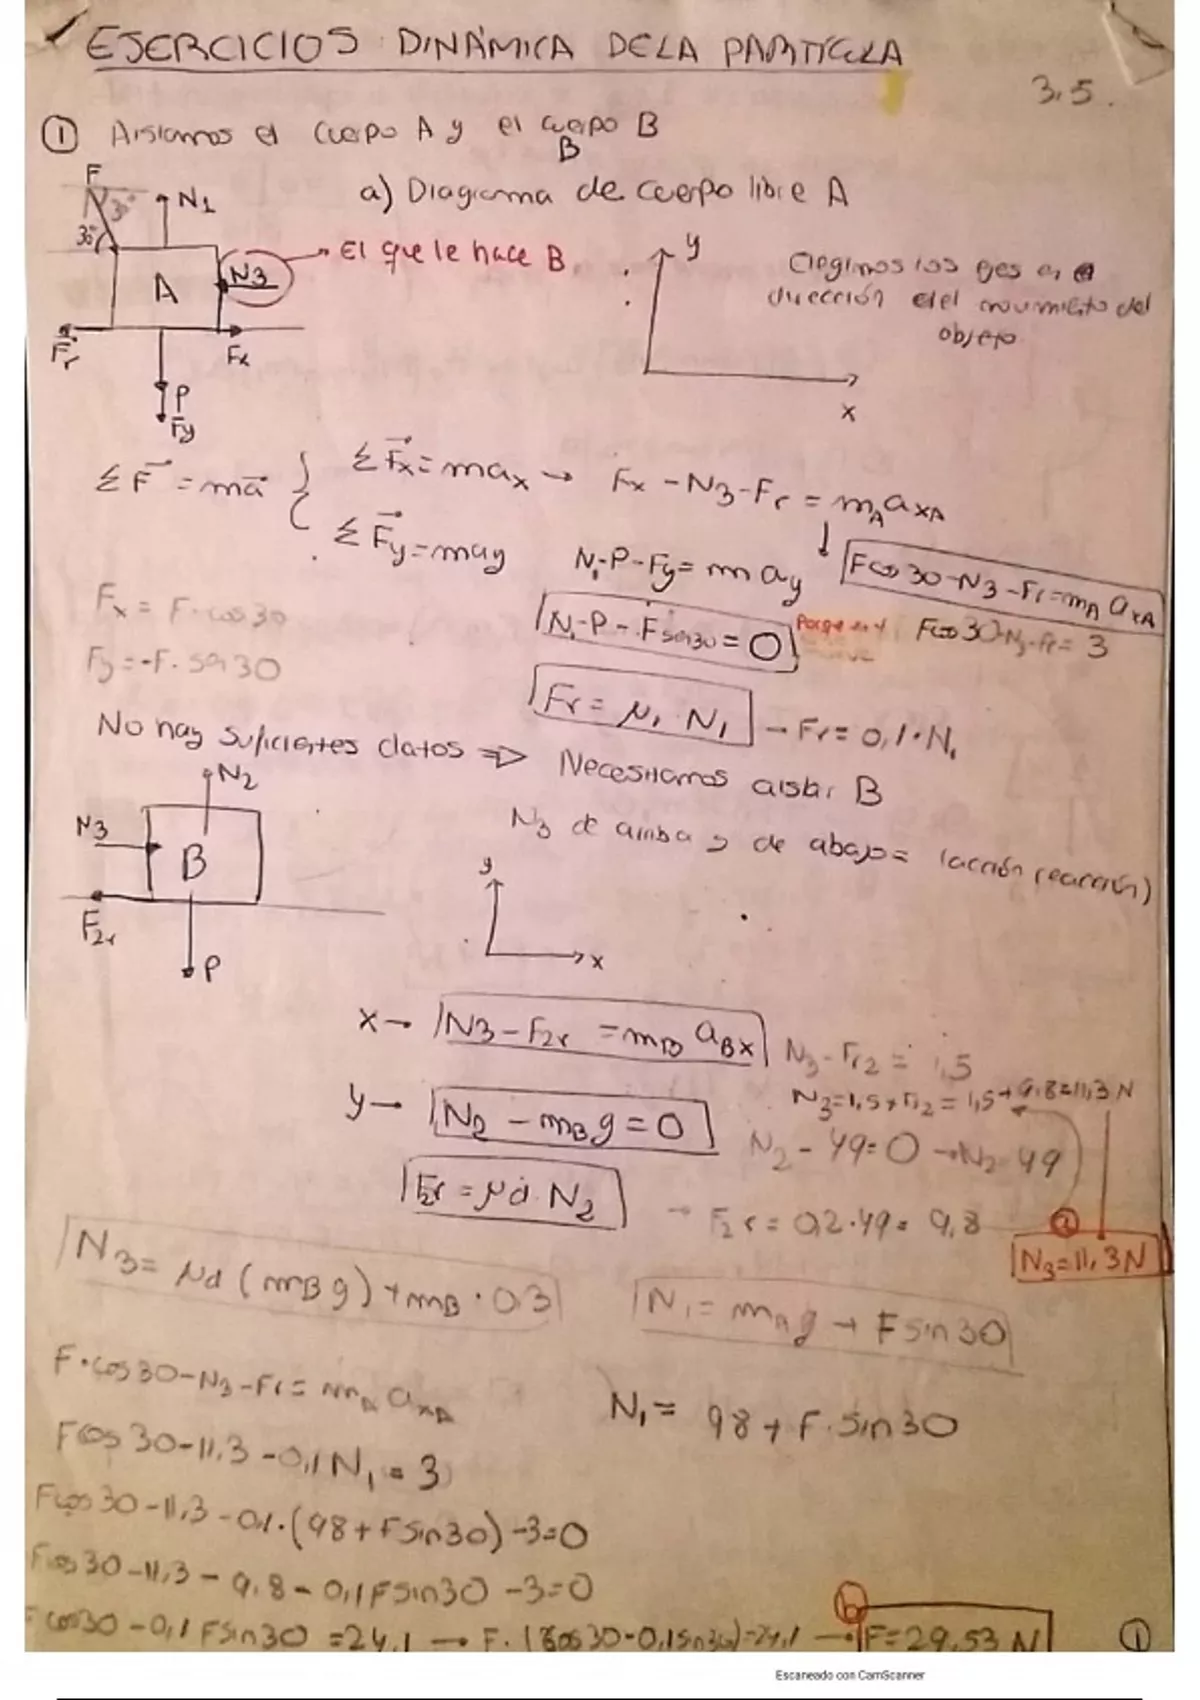 EJERCICIOS DINÁMICA DE LA PARTÍCULA
3.5.
① Aislamos el cuerpo A y el cuerpo B
B
a) Diagrama de cuerpo libre A
F
30°
N1
30°
A
N3 → El que le hace B
Fr
Fx
P
Fy
y
x
Elegimos los ejes en
dirección del movimiento del
objeto
ΣF = ma { ΣFx = max → Fx - N3 - Fr = mA axA
ΣFy = may N1 - P - Fy = m ay ↓ Fcos30 - N3 - Fr = mA axA
Fx = F·cos30
N1 - P - Fsen30 = 0 Porque en y Fcos30 - N3 - Fr = 3
Fy = -F·sen30
Fr = μ1·N1 → Fr = 0,1·N1
No hay suficientes datos ⇒ Necesitamos aislar B
N3 de arriba y de abajo = (acción reacción)
N2
N3
B
F2r
P
y
x
x → N3 - F2r = mB aBx N3 - Fr2 = 1,5
N3 = 1,5 + Fr2 = 1,5 + 9.8 = 11,3 N
y → N2 - mB g = 0 N2 - 49 = 0 → N2 = 49
F2r = μd·N2 → F2r = 0,2·49 = 9,8
a
N3 = 11,3 N
N3 = μd (mB g) + mB·0,3
N1 = mA g + F sin30
F·cos30 - N3 - Fr = mA axA
N1 = 98 + F·sin30
Fcos30 - 11.3 - 0,1 N1 = 3
Fcos30 - 11,3 - 0,1·(98 + Fsin30) - 3 = 0
Fcos30 - 11,3 - 9.8 - 0,1 Fsin30 - 3 = 0
b
F cos30 - 0,1 Fsin30 = 24,1 → F·(cos30 - 0,1sin30) = 24,1 → F = 29.53 N
①
Escaneado con CamScanner